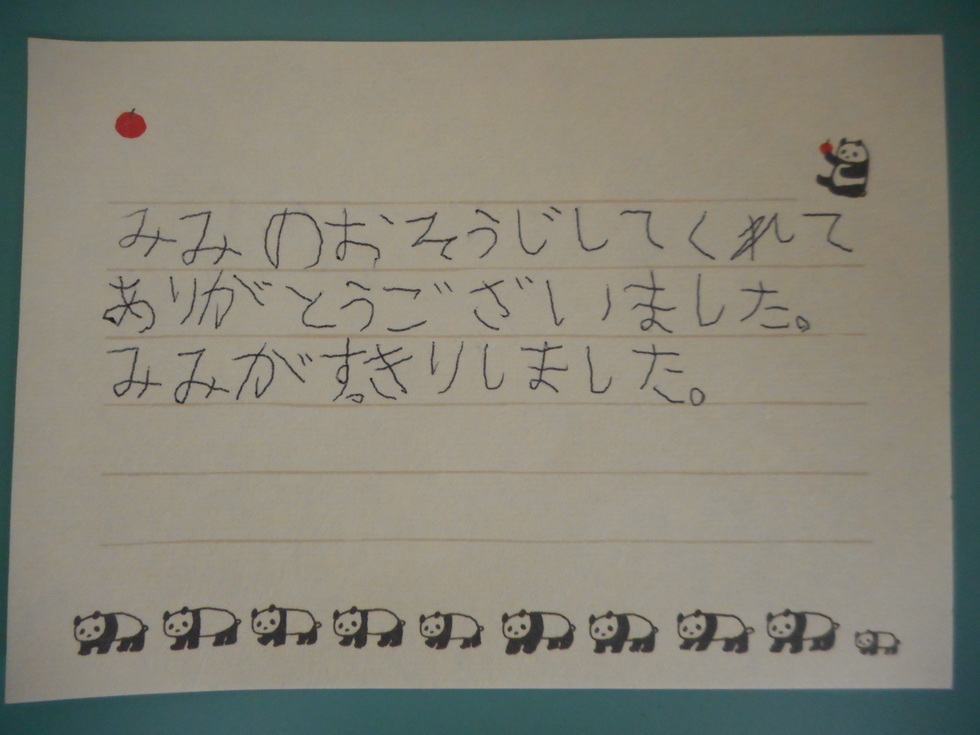 みみのおそうじしてくれて
ありがとうございました。
みみがすきりしました。